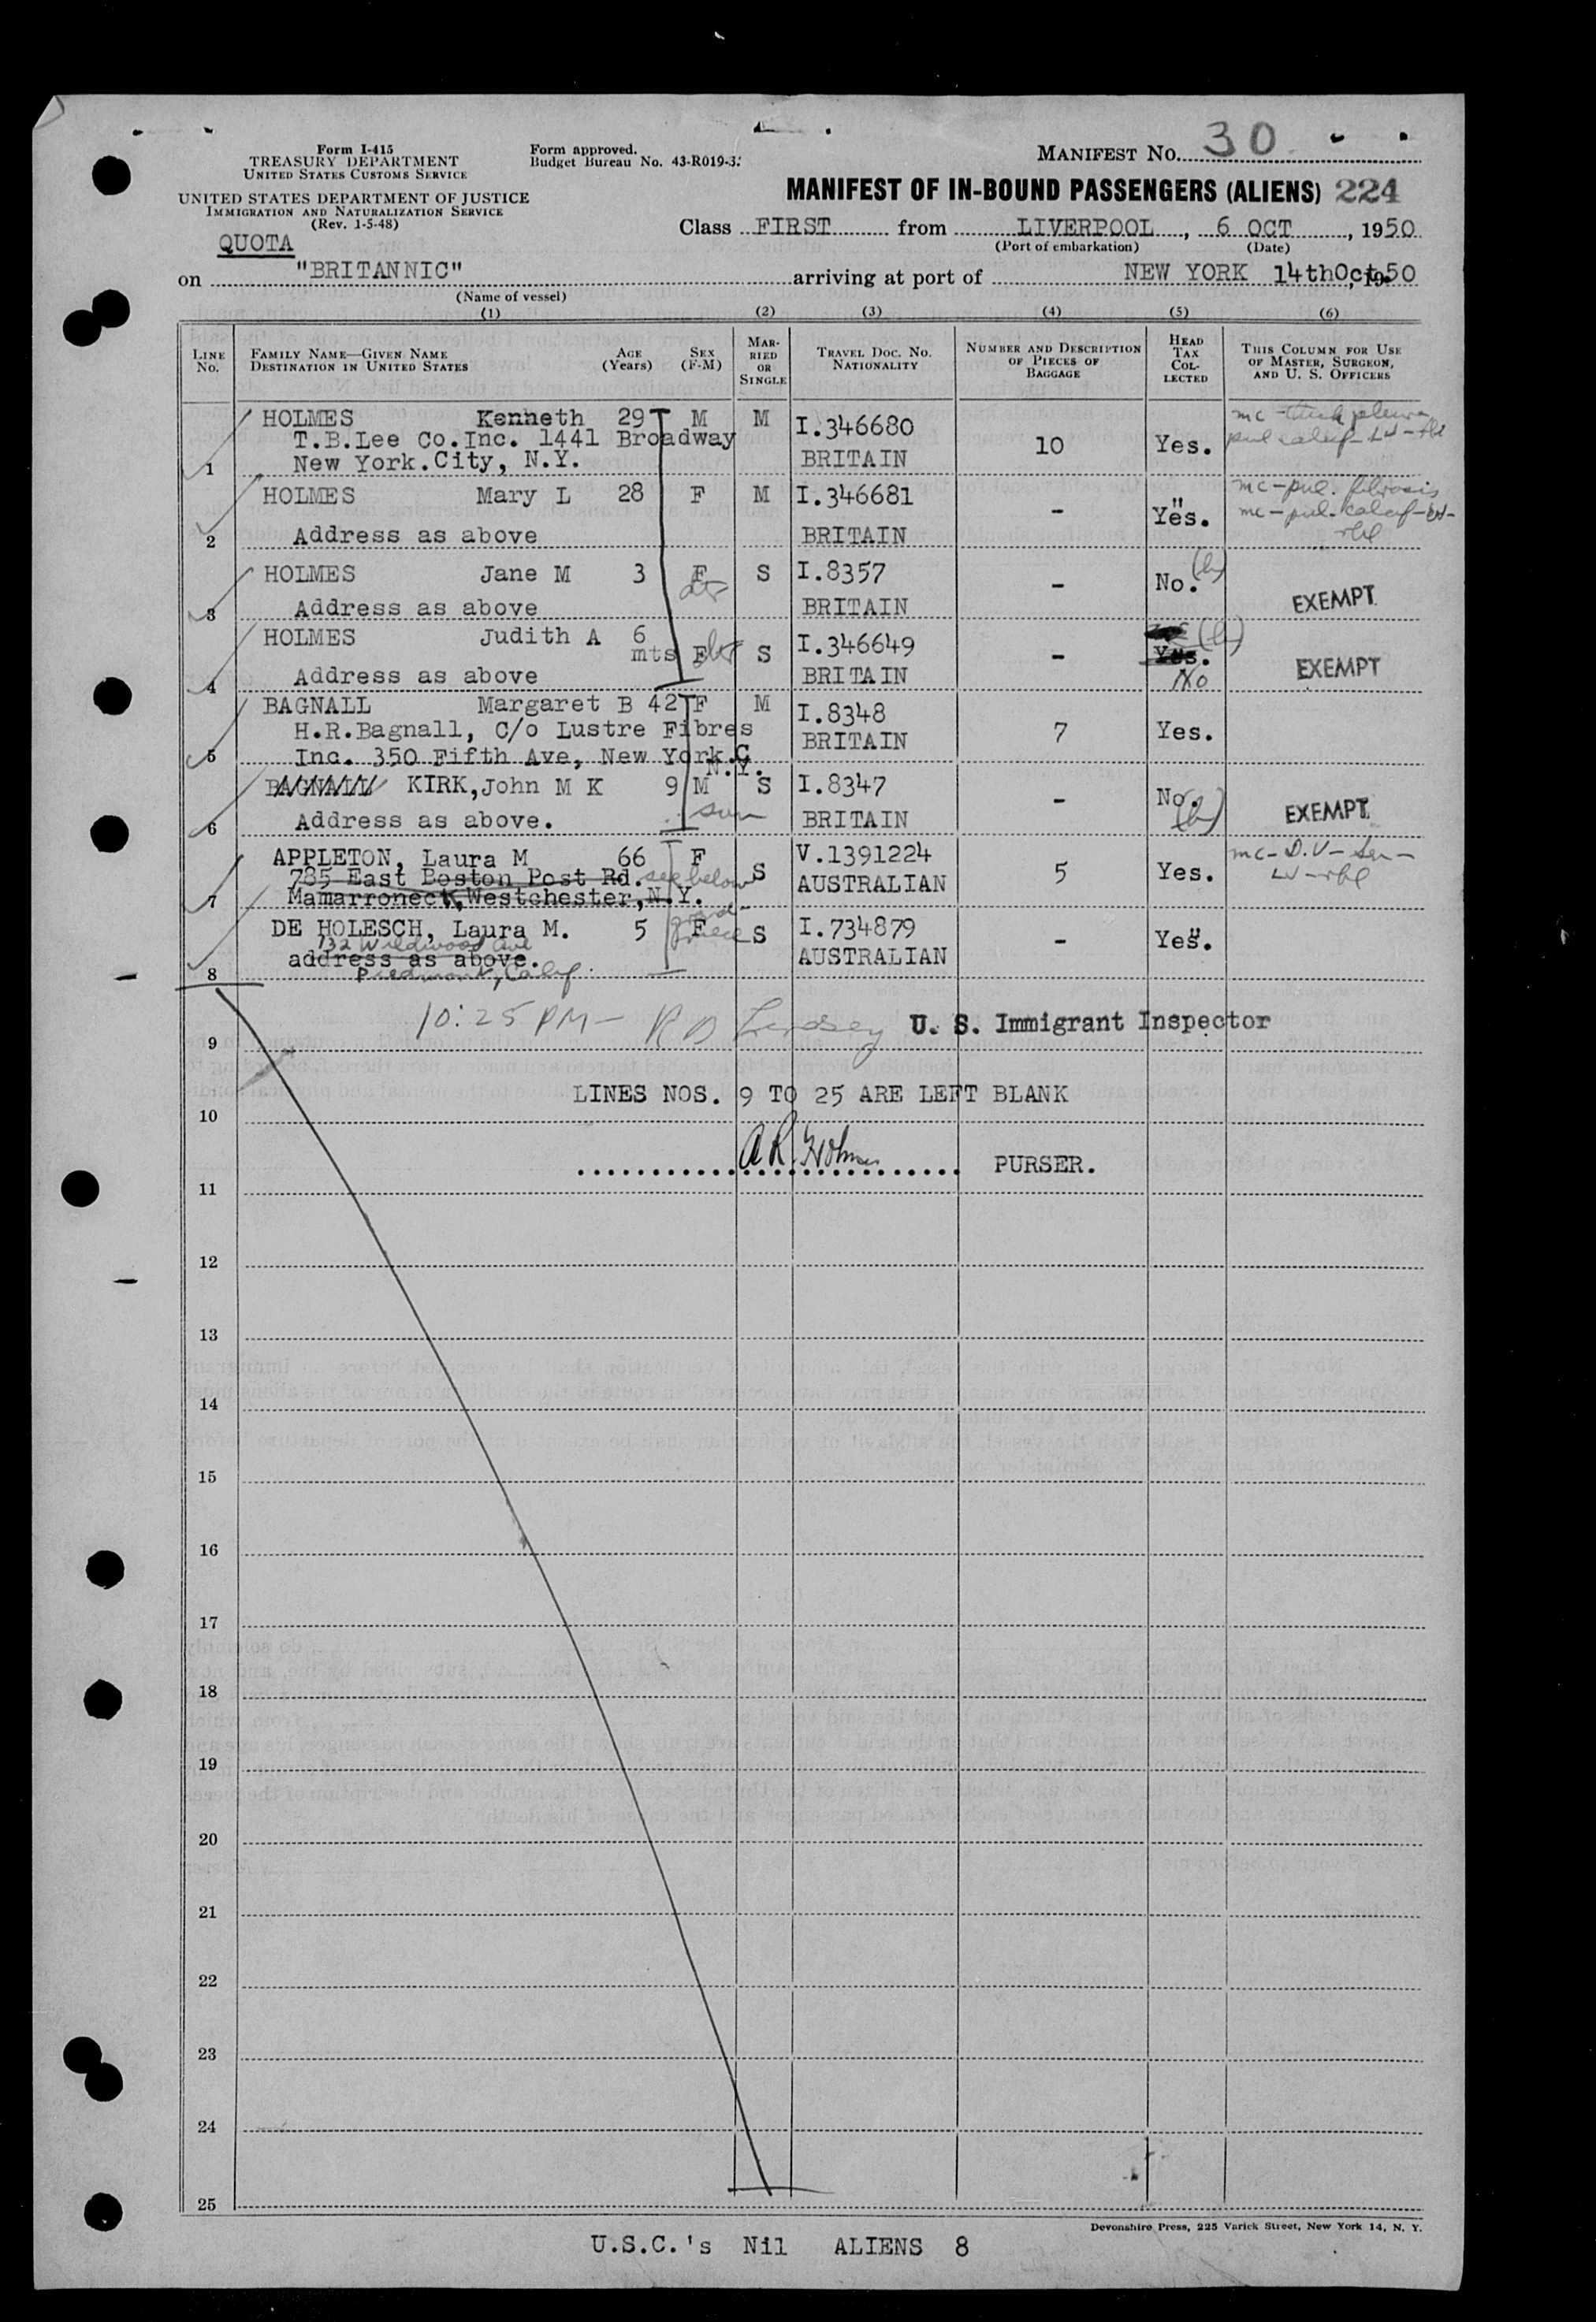 Form I-415
TREASURY DEPARTMENT
UNITED STATES CUSTOMS SERVICE
UNITED STATES DEPARTMENT OF JUSTICE
IMMIGRATION AND NATURALIZATION SERVICE
(Rev. 1-5-48)
Form approved.
Budget Bureau No. 43-R019-3.
MANIFEST No. 30
MANIFEST OF IN-BOUND PASSENGERS (ALIENS) 224
Class FIRST from LIVERPOOL, 6 OCT, 1950
(Port of embarkation) (Date)
QUOTA
on "BRITANNIC" arriving at port of NEW YORK 14thOct, 1950
(Name of vessel)
(1) (2) (3) (4) (5) (6)
LINE No.
FAMILY NAME—GIVEN NAME
DESTINATION IN UNITED STATES
AGE (Years)
SEX (F-M)
MARRIED OR SINGLE
TRAVEL DOC. NO. NATIONALITY
NUMBER AND DESCRIPTION OF PIECES OF BAGGAGE
HEAD TAX COLLECTED
THIS COLUMN FOR USE OF MASTER, SURGEON, AND U. S. OFFICERS
HOLMES Kenneth 29 M M I.346680 mc - thick pleura
T.B.Lee Co.Inc. 1441 Broadway 10 Yes.
1 New York.City, N.Y. BRITAIN
HOLMES Mary L 28 F M I.346681 - Yes. " mc - pul. fibrosis
mc - pul. calcif -
2 Address as above BRITAIN
HOLMES Jane M 3 F S I.8357 - No.
dtr
3 Address as above BRITAIN EXEMPT
HOLMES Judith A 6 mts F dtr S I.346649 - Yes. No
4 Address as above BRITAIN EXEMPT
BAGNALL Margaret B 42 F M I.8348
H.R.Bagnall, C/o Lustre Fibres BRITAIN 7 Yes.
5 Inc. 350 Fifth Ave, New York.C
N.Y.
BAGNALL KIRK, John M K 9 M S I.8347 - No.
son
6 Address as above. BRITAIN EXEMPT
APPLETON, Laura M 66 F S V.1391224 mc - D.V -
785 East Boston Post Rd. see below AUSTRALIAN 5 Yes.
7 Mamarroneck, Westchester, N.Y.
DE HOLESCH, Laura M. 5 F S I.734879 - Yes. "
grand niece
732 Wildwood Ave
address as above. AUSTRALIAN
8 Piedmont, Calif.
10:25 PM - R D Lindsey U. S. Immigrant Inspector
9
LINES NOS. 9 TO 25 ARE LEFT BLANK
10
A R Holmes PURSER.
11
12
13
14
15
16
17
18
19
20
21
22
23
24
25
Devonshire Press, 225 Varick Street, New York 14, N. Y.
U.S.C.'s Nil ALIENS 8